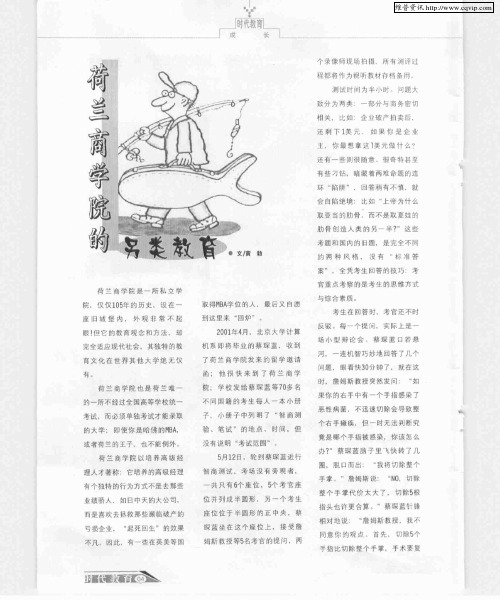 维普资讯 http://www.cqvip.com
时代教育
成 长
荷兰商学院的
另类教育
文/黄 勃
荷兰商学院是一所私立学
院,仅仅105年的历史,设在一
座旧城堡内,外观非常不起
眼!但它的教育观念和方法,却
完全适应现代社会,其独特的教
育文化在世界其他大学绝无仅
有。
荷兰商学院也是荷兰唯一
的一所不经过全国高等学校统一
考试,而必须单独考试才能录取
的大学;即使你是哈佛的MBA,
或者荷兰的王子,也不能例外。
荷兰商学院以培养高级经
理人才著称;它培养的高级经理
有个独特的行为方式不是去那些
业绩骄人,如日中天的大公司,
而是喜欢去拯救那些濒临破产的
亏损企业,“起死回生”的效果
不凡。因此,有一些在英美等国
取得MBA学位的人,最后又自愿
到这里来“回炉”。
2001年4月,北京大学计算
机系即将毕业的蔡琛蓝,收到
了荷兰商学院发来的留学邀请
函;他很快来到了荷兰商学
院;学校发给蔡琛蓝等70多名
不同国籍的考生每人一本小册
子,小册子中列明了“智商测
验、笔试”的地点,时间,但
没有说明“考试范围”。
5月12日,轮到蔡琛蓝进行
智商测试,考场没有旁观者,
一共只有6个座位,5个考官座
位并列成半圆形,另一个考生
座位位于半圆形的正中央,蔡
琛蓝坐在这个座位上,接受詹
姆斯教授等5名考官的提问,两
个录像师现场拍摄,所有测评过
程都将作为视听教材存档备用。
测试时间为半小时,问题大
致分为两类:一部分与商务密切
相关,比如:企业破产拍卖后,
还剩下1美元,如果你是企业
主,你最想拿这1美元做什么?
还有一些则很随意,很奇特甚至
有些刁钻,暗藏着两难命题的连
环“陷阱”,回答稍有不慎,就
会自陷绝境:比如“上帝为什么
取亚当的肋骨,而不是取夏娃的
肋骨创造人类的另一半?”这些
考题和国内的旧题,是完全不同
的两种风格,没有“标准答
案”,全凭考生回答的技巧:考
官重点考察的是考生的思维方式
与综合素质。
考生在回答时,考官还不时
反驳,每一个提问,实际上是一
场小型辩论会,蔡琛蓝口若悬
河,一连机智巧妙地回答了几个
问题,眼看快30分钟了,就在这
时,詹姆斯教授突然发问:“如
果你的右手中有一个手指感染了
恶性病菌,不迅速切除会导致整
个右手瘫痪,但一时无法判断究
竟是哪个手指被感染,你该怎么
办?”蔡琛蓝脑子里飞快转了几
圈,脱口而出:“我将切除整个
手掌。”詹姆斯说:“NO,切除
整个手掌代价太大了,切除5根
指头也许更合算。”蔡琛蓝针锋
相对地说:“詹姆斯教授,我不
同意你的观点。首先,切除5个
手指比切除整个手掌,手术要复
时代教育